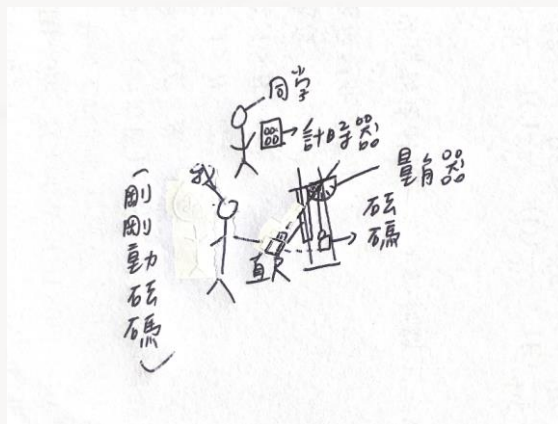 同学
計時器
量角器
我
砝碼
直尺
(剛剛動砝碼)